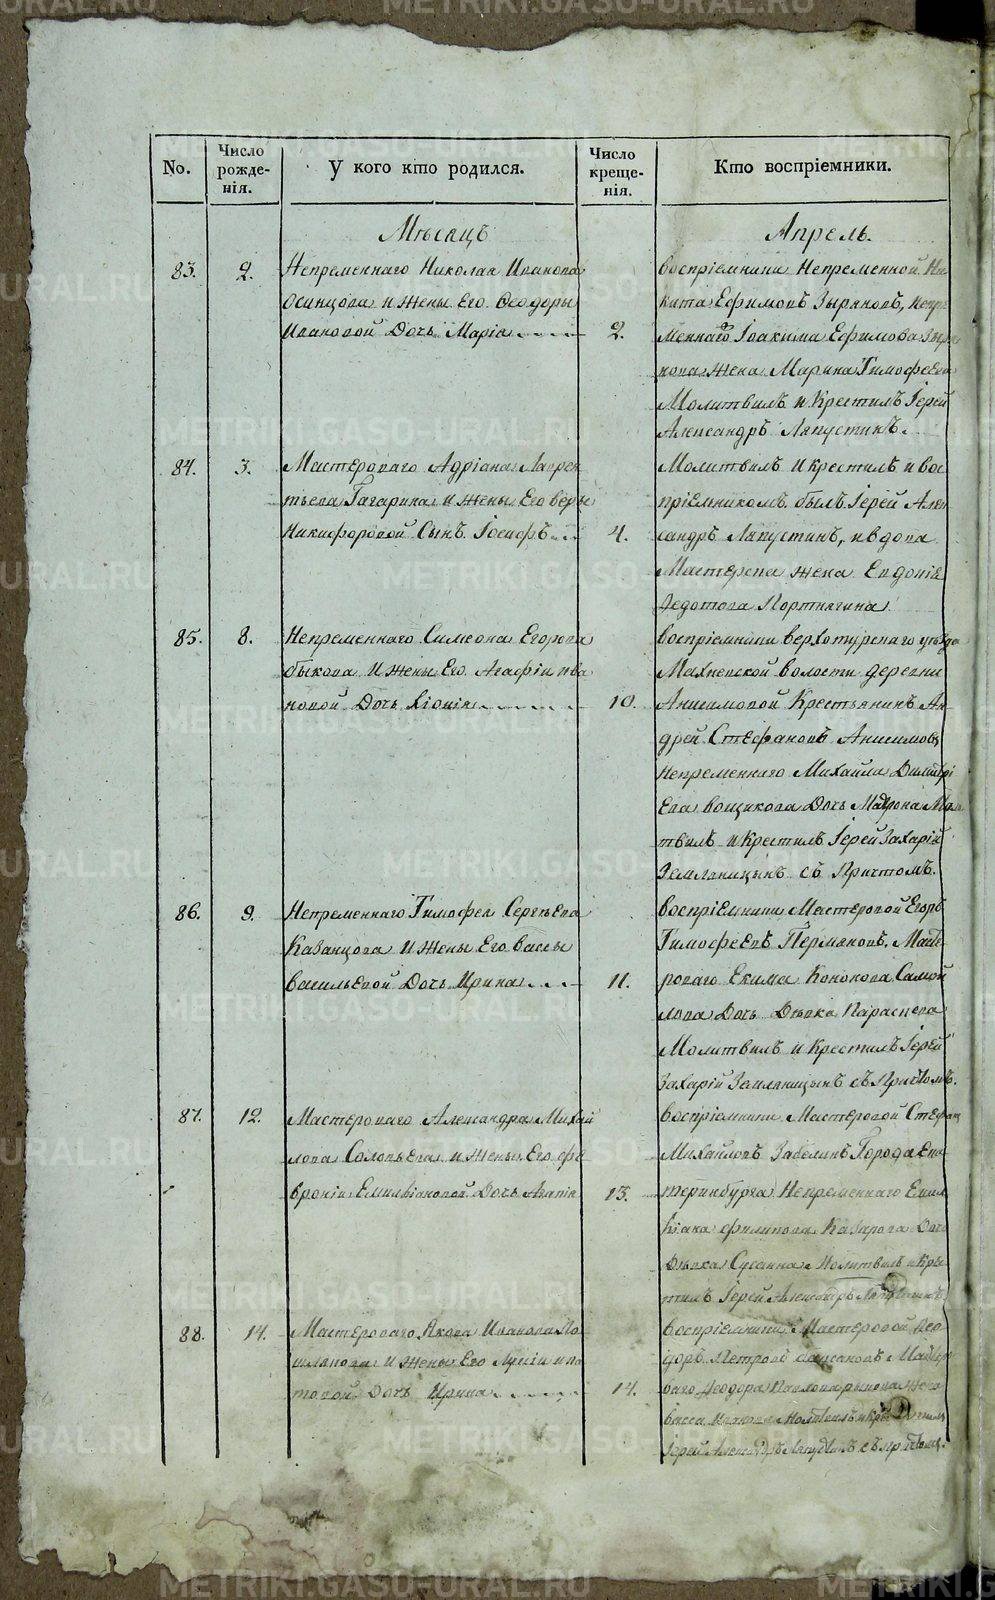 No.
Число рожде-нія.
У кого кто родился.
Число креще-нія.
Кто воспріемники.
Мѣсяцъ
Апрель.
83.
2.
Непременнаго Николая Иванова
Осинцова и жены Его Ѳеодоры
Ивановой Дочь Марія
2.
воспріемники Непременной Ни-
кита Ефимовъ Зыряновъ, непре
меннаго Іоакима Ефимова Зыря
нова жена Марина Тимофеева
Молитвилъ и Крестилъ Іерей
Александръ Ляпустинъ.
84.
3.
Мастероваго Адріана Лаврен
тьева Гагарина и жены Его Веры
Никифоровой Сынъ Іосифъ
4.
Молитвилъ и крестилъ и вос
пріемникомъ былъ Іерей Алек
сандръ Ляпустинъ, и вдова
Мастерска жена Евдокія
Федотова Портнягина
85.
8.
Непременнаго Симеона Егорова
быкова и жены Его Агафіи Ива
новой Дочь Хіонія
10.
воспріемники верхотурскаго уѣзда
Махневской волости деревни
Анисимовой Крестьянинъ Ан-
дрей Стефановъ Анисимовъ
Непременнаго Михаила Димитрі
Ева вощикова Дочь Матрона Моли
твилъ и Крестилъ Іерей Захарій
Земляницынъ съ Причтомъ.
86.
9.
Непременнаго Тимофея Сергѣева
Казанцова и жены Его Вассы
васильевой Дочь Ирина
11.
воспріемники Мастеровой Егоръ
Тимофеевъ Пермяковъ, Масте
роваго Екима Кононова Самой
лова Дочь Дѣвка Параскева
Молитвилъ и Крестилъ Іерей
Захарій Земляницынъ съ Причтомъ.
87.
12.
Мастероваго Александра Михай
лова Соловьева и жены Его Фе
вроніи Емиліановой Дочь Агапія
13.
воспріемники Мастеровой Стефан
Михайловъ Забелинъ Города Ека
теринбурга Непременнаго Емил
іана Филипова Дочь
Дѣвка Сусанна Молитвилъ и Кре
стилъ Іерей Александръ Ляпустинъ
88.
14.
Мастероваго Якова Иванова По
и жены Его Лукіи
товой Дочь Ирина
14.
воспріемники Мастеровой Ѳео
доръ Петровъ Мастер
оваго Ѳеодора Павлова жена
Васса Иванова Молитвилъ и Крестилъ
Іерей Александръ Ляпустинъ съ причтомъ.
METRIKI.GASO-URAL.RU